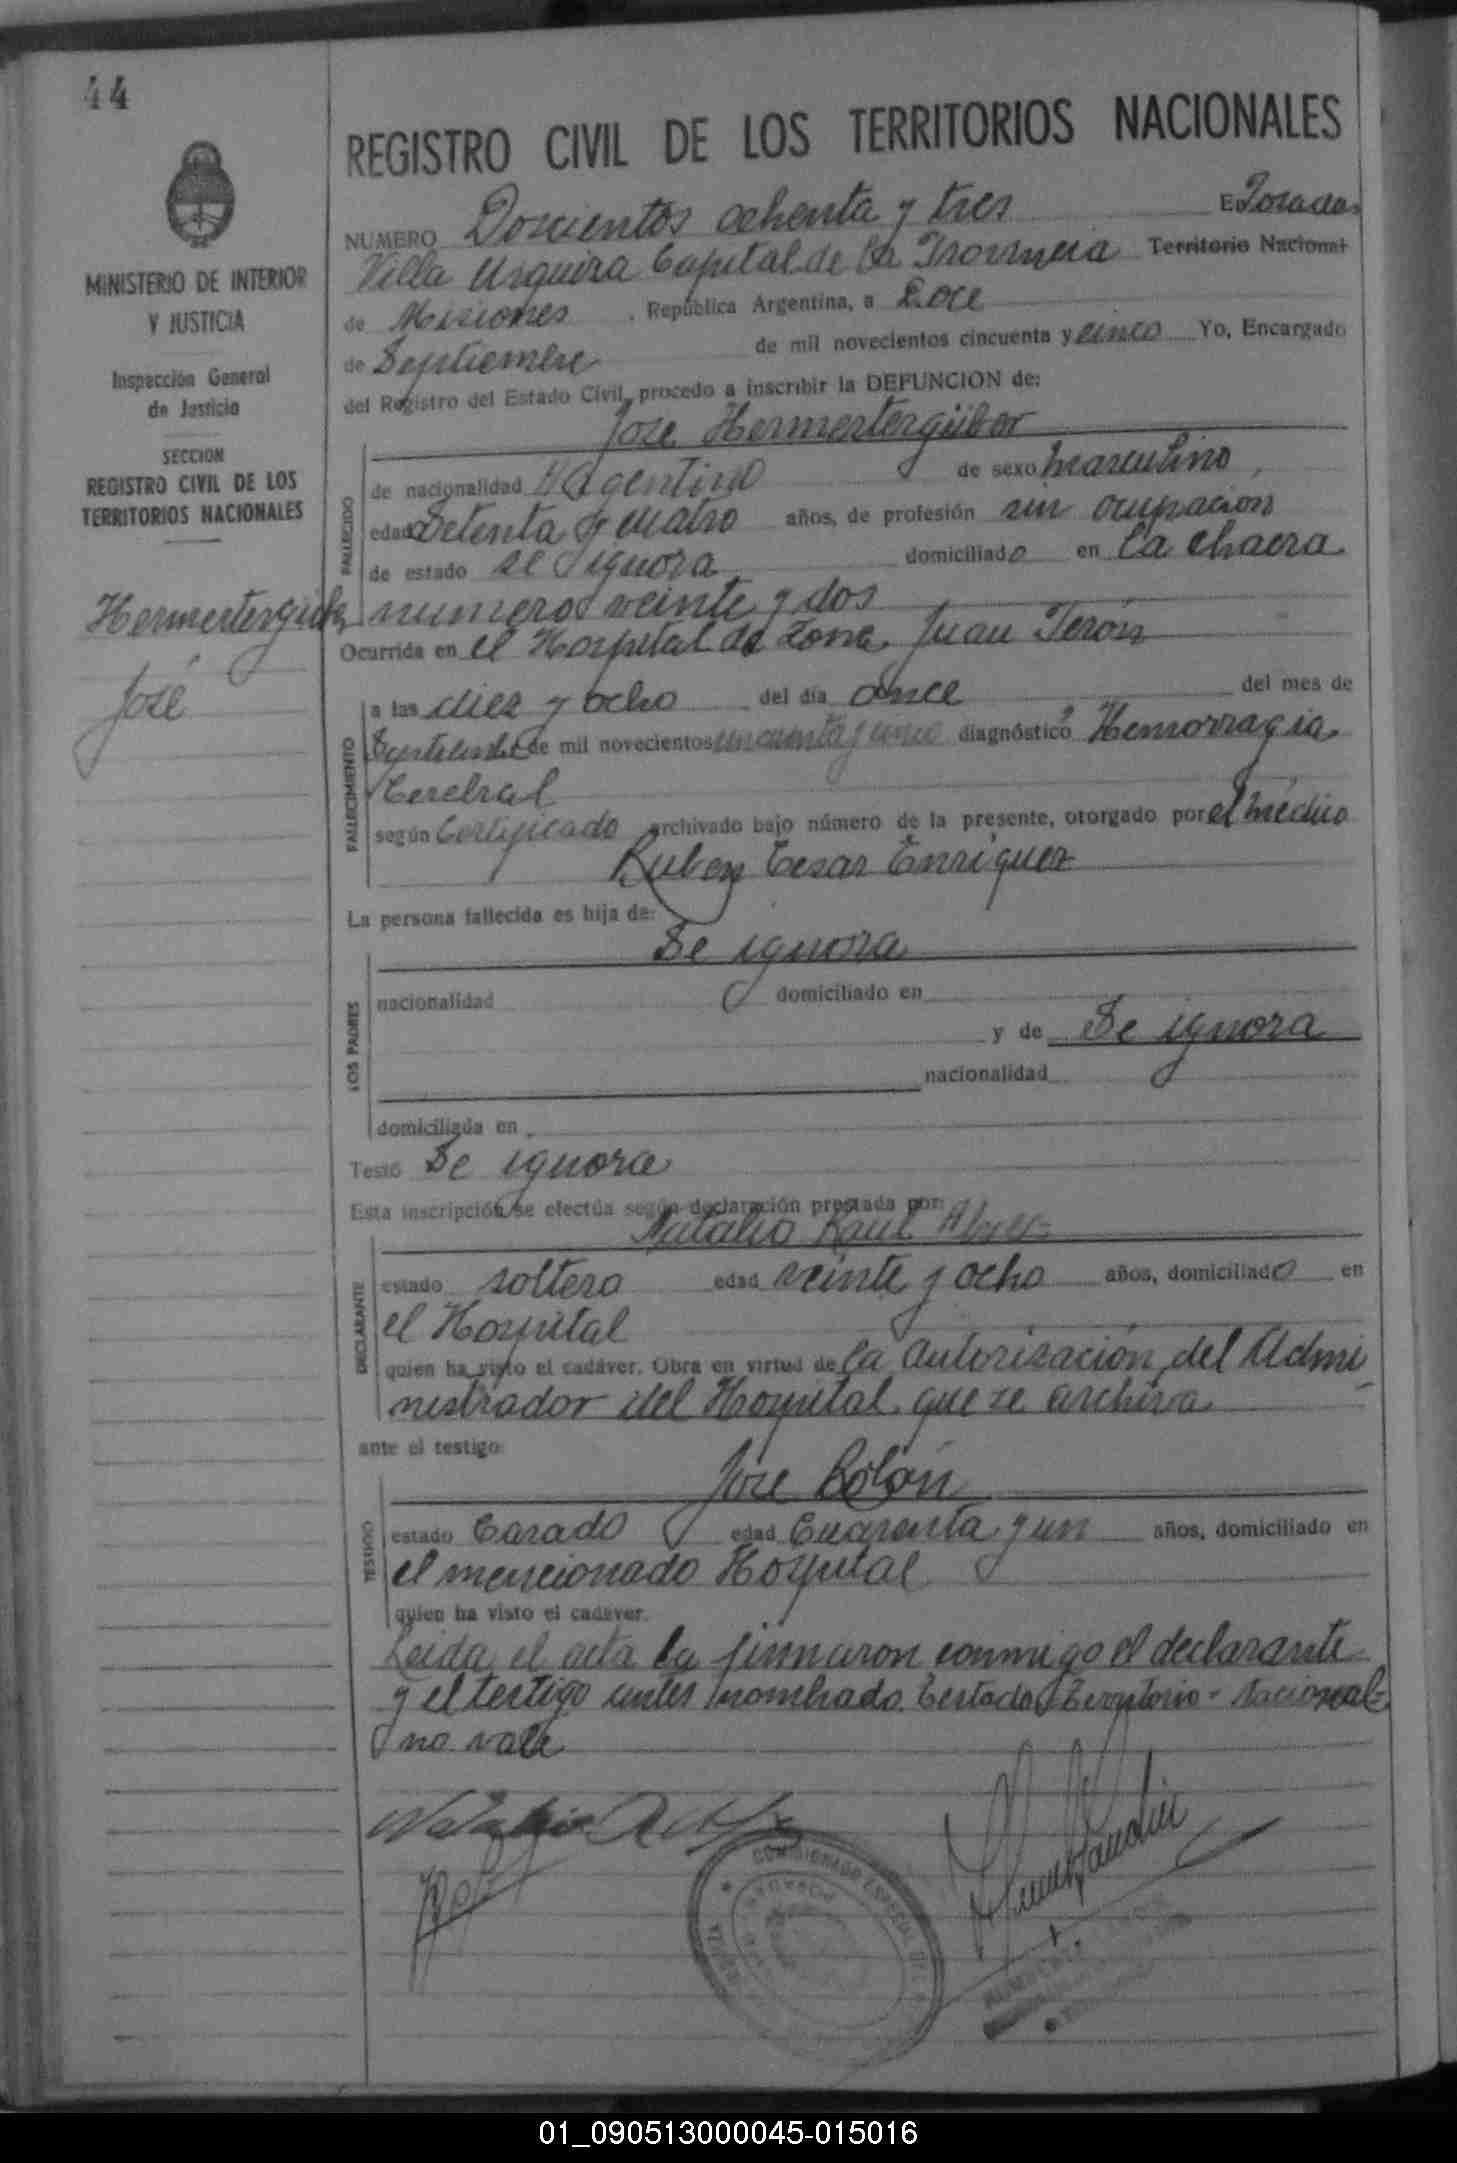 44
REGISTRO CIVIL DE LOS TERRITORIOS NACIONALES
NUMERO Doscientos ochenta y tres En Posadas
Villa Urquiza Capital de la Provincia Territorio Nacional
de Misiones , República Argentina, a Doce
de Septiembre de mil novecientos cincuenta y cinco Yo, Encargado
del Registro del Estado Civil, procedo a inscribir la DEFUNCION de:
MINISTERIO DE INTERIOR
Y JUSTICIA
Inspección General
de Justicia
SECCION
REGISTRO CIVIL DE LOS
TERRITORIOS NACIONALES
Hermertergüber
José
FALLECIDO
Jose Hermertergüber
de nacionalidad Argentino de sexo masculino,
edad Setenta y cuatro años, de profesión sin ocupación
de estado se ignora domiciliado en la chacra
numero veinte y dos
Ocurrida en el Hospital de Zona, Juan Terón
FALLECIMIENTO
a las diez y ocho del día once del mes de
Septiembre de mil novecientos cincuenta y cinco diagnóstico Hemorragia
Cerebral
según Certificado archivado bajo número de la presente, otorgado por el médico
Ruben Cesar Enriquez
La persona fallecida es hija de:
LOS PADRES
Se ignora
nacionalidad domiciliado en
y de Se ignora
nacionalidad
domiciliada en
Testó Se ignora
Esta inscripción se efectúa según declaración prestada por:
DECLARANTE
Natalio Raul
estado soltero edad veinte y ocho años, domiciliado en
el Hospital
quien ha visto el cadáver. Obra en virtud de la autorización del Admi
nistrador del Hospital que se archiva
ante el testigo:
TESTIGO
Jose Colón
estado Casado edad Cuarenta y un años, domiciliado en
el mencionado Hospital
quien ha visto el cadáver.
Leida el acta la firmaron conmigo el declarante
y el testigo antes nombrado. Testado: Territorio - Nacional=
no vale
COMISIONADO ESPECIAL DEL
POSADAS
01_090513000045-015016